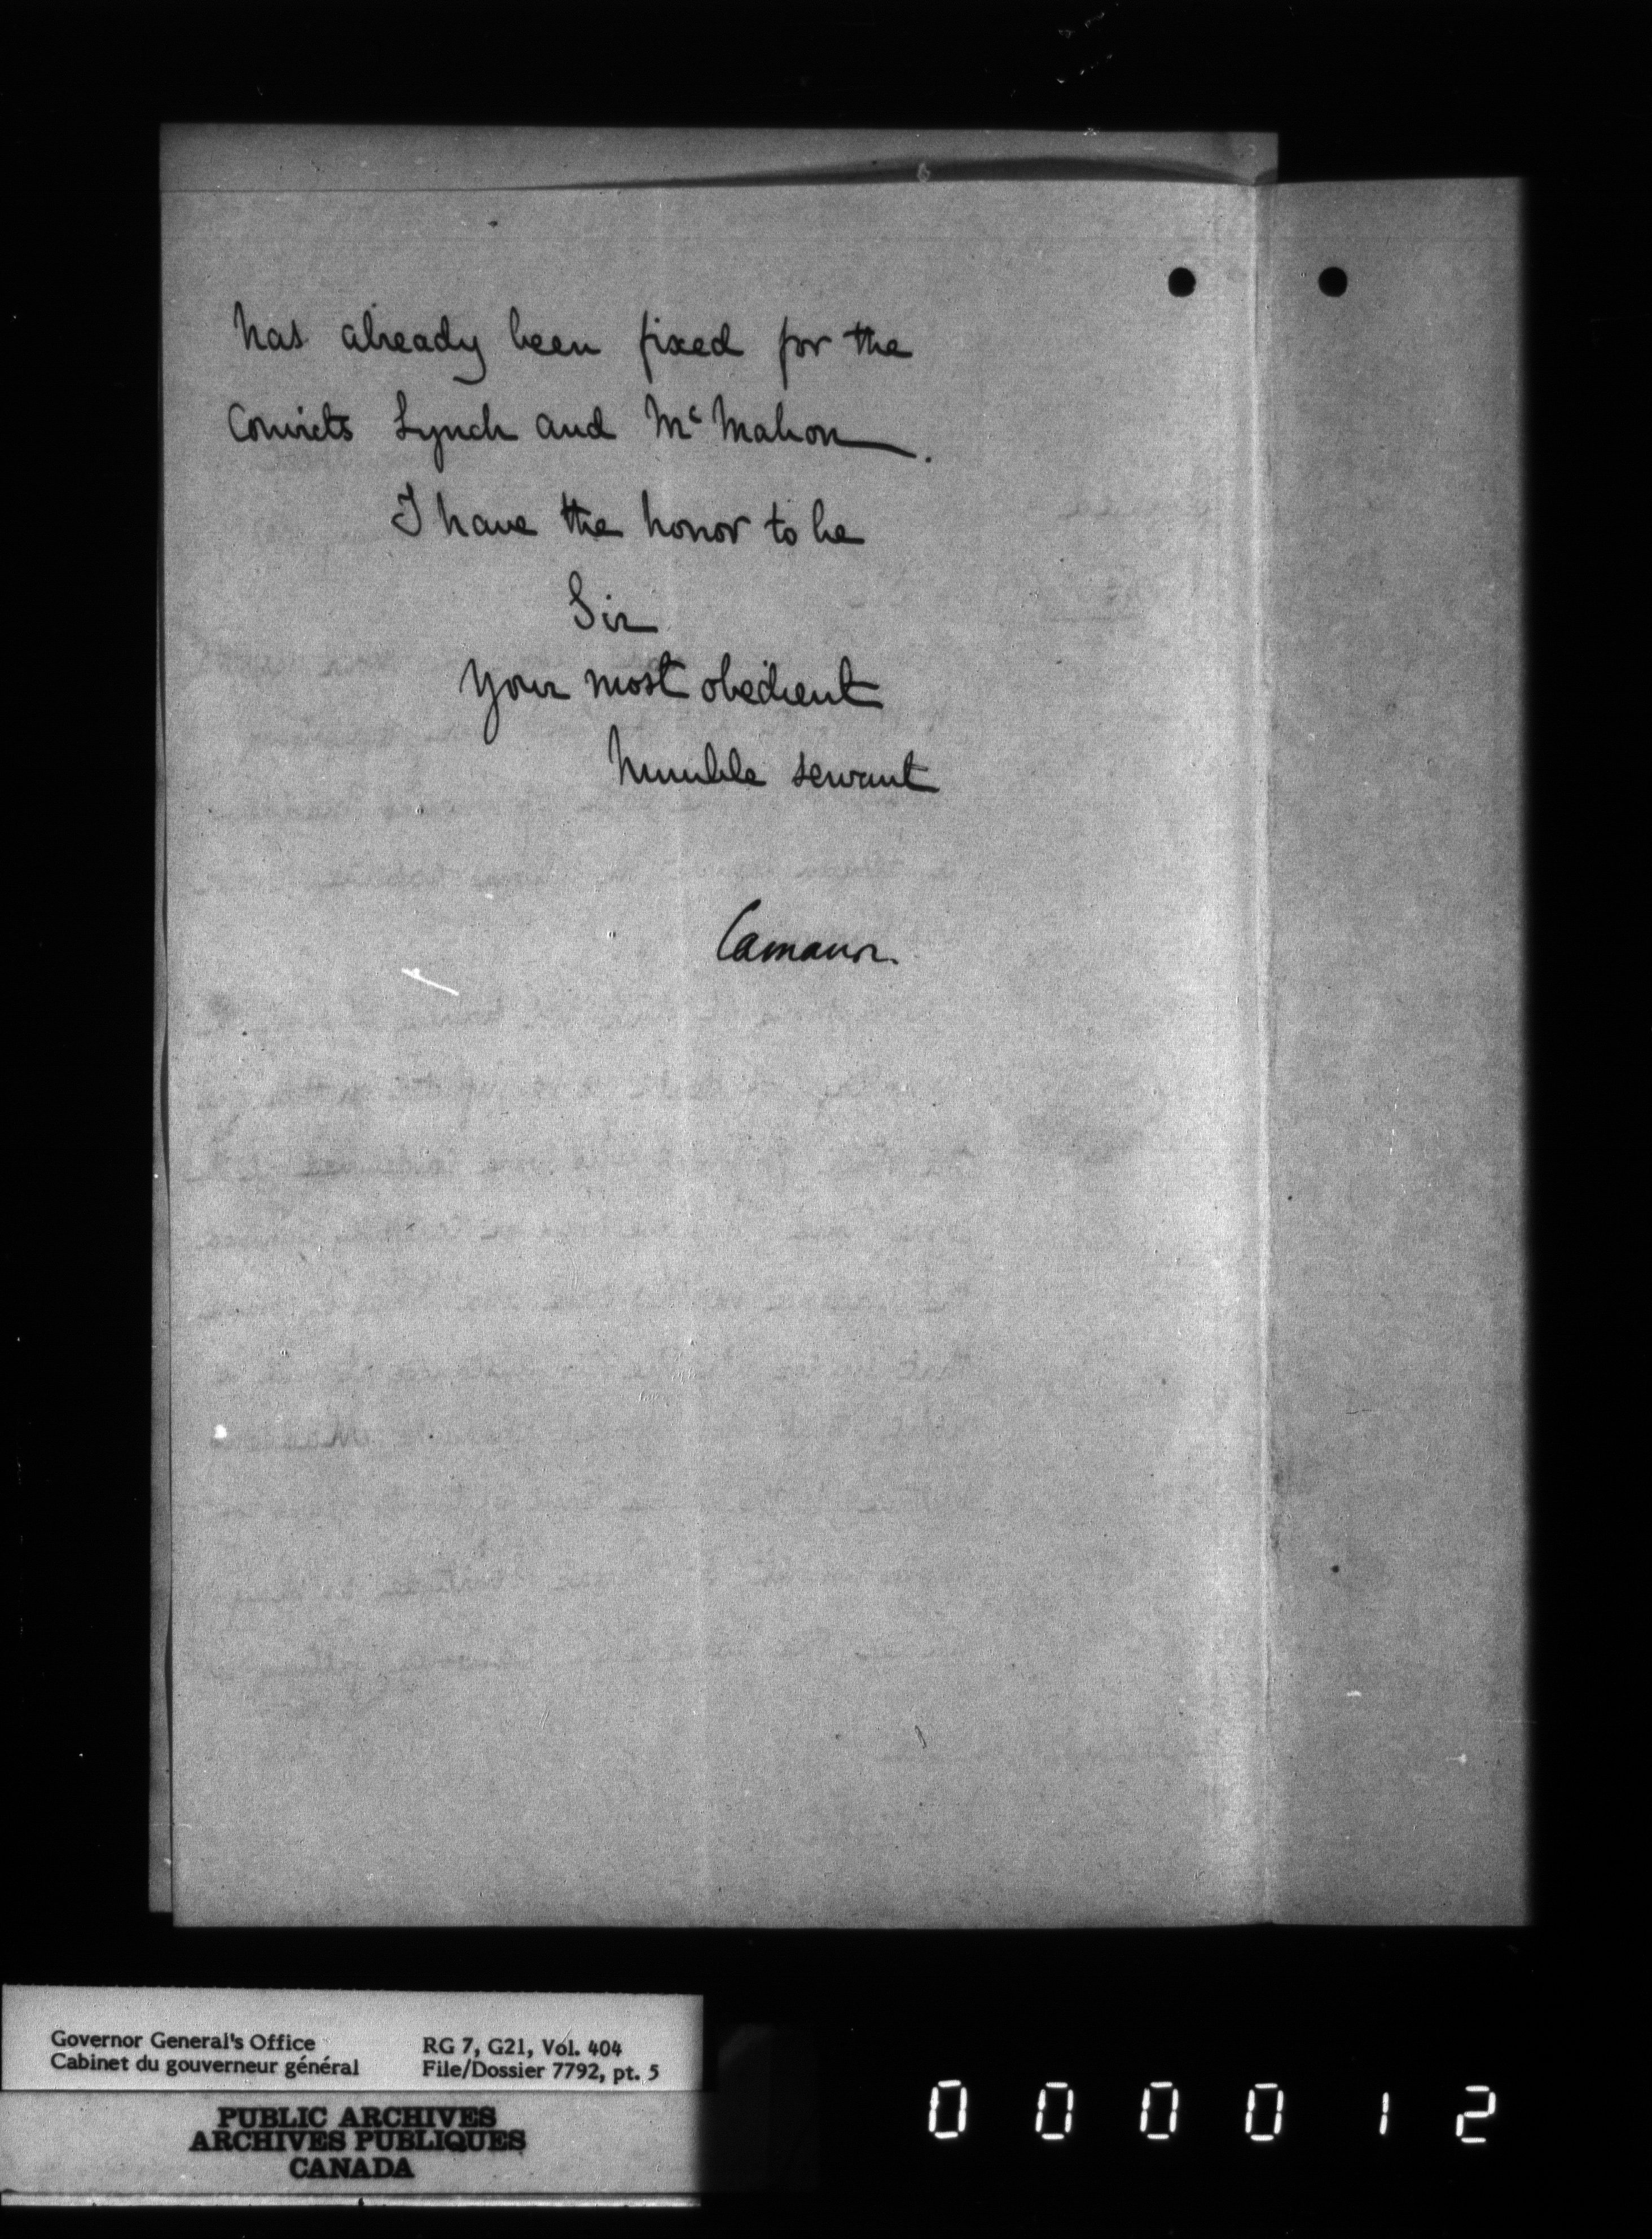 has already been fixed for the
Convicts Lynch and Mc Mahon.
I have the honor to be
Sir
Your most obedient
humble servant
Carnarvon.
Governor General's Office
Cabinet du gouverneur général
RG 7, G21, Vol. 404
File/Dossier 7792, pt. 5
PUBLIC ARCHIVES
ARCHIVES PUBLIQUES
CANADA
000012